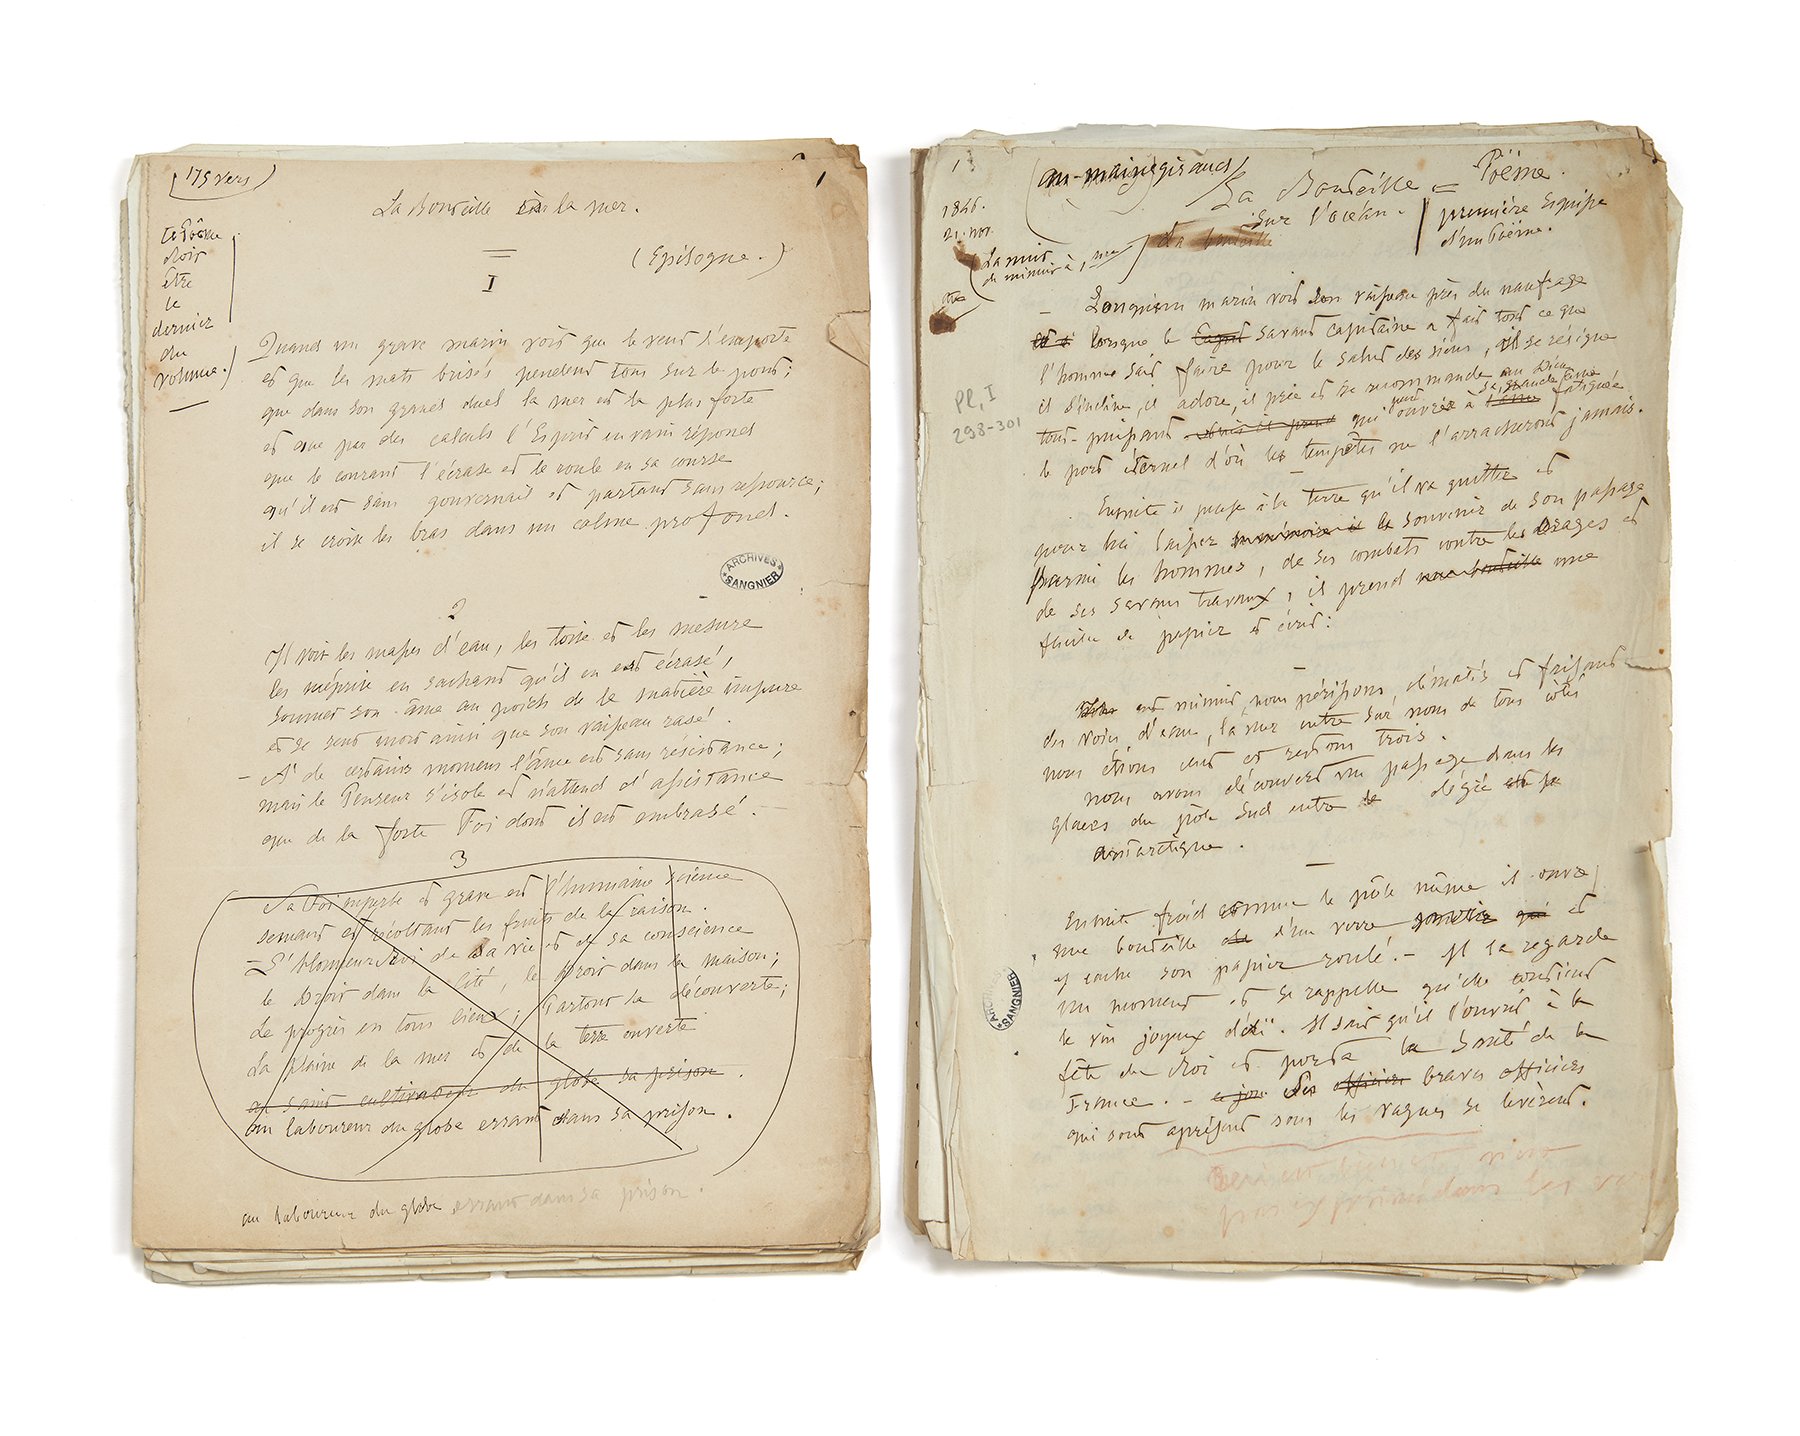 (175 vers)
1
La Bouteille à la mer.
ce Poème
doit
être
le
dernier
du
volume.)
(Epilogue.)
I
Quand un grave marin voit que le vent l'emporte
et que les mats brisés pendent tous sur le pont;
que dans son grand duel la mer est la plus forte
et que par des calculs l'Esprit en vain répond
que le courant l'écrase et le roule en sa course
qu'il est sans gouvernail et partant sans ressource;
il se croise les bras dans un calme profond.
ARCHIVES
SANGNIER
2
Il voit les masses d'eau, les toise et les mesure
les méprise en sachant qu'il en est écrasé,
soumet son âme au poids de la matière impure
et se sent mort ainsi que son vaisseau rasé.
– A de certains momens l'âme est sans résistance;
mais le Penseur s'isole et n'attend d'assistance
que de la forte Foi dont il est embrasé. –
3
Sa Foi superbe et grave est l'humaine science
semant et récoltant les fruits de la raison.
– L'Honneur Roi de sa vie et de sa conscience
le Droit dans la Cité, le Droit dans la maison;
Le progrès en tous lieux; Partout la découverte;
La plaine de la mer et de la terre ouverte
au saint cultivateur du globe sa prison.
au laboureur du globe errant dans sa prison.
au laboureur du globe errant dans sa prison.
1
(au-maine giraud)
La Bouteille = Poëme.
1846.
21. nov.
sur l'océan.
première Esquisse
d'un Poëme.
La bouteille
(La nuit
de minuit à
Pl. I
298-301
– Lorsqu'un marin voit son vaisseau près du naufrage
lorsque le savant capitaine a fait tout ce que
l'homme sait faire pour le salut des siens, il se résigne
il s'incline, il adore, il prie et se recommande au Dieu
tout-puissant qui peut ouvrir à sa grande âme fatiguée
le port éternel d'où les tempêtes ne l'arracheront jamais.
–
Ensuite il pense à la terre qu'il va quitter et
pour lui laisser le souvenir de son passage
parmi les hommes, de ses combats contre les orages et
de ses savans travaux, il prend une bouteille une
feuille de papier et écrit:
–
est minuit, nous périssons, démâtés et
des voies d'eau, la mer entre sur nous de tous côtés
nous étions cent et restons trois.
nous avons découvert un passage dans les
glaces du pôle Sud entre le degré
antarctique.
–
Ensuite froid comme le pôle même il ouvre
une bouteille d'un verre et
y entre son papier roulé. – Il la regarde
un moment et se rappelle qu'elle contient
le vin joyeux d'Aï. Il sait qu'il l'ouvrit à la
fête du Roi et porta la Santé de la
France. – Les officiers braves officiers
qui sont à présent sous les vagues se levèrent.
ARCHIVES
SANGNIER